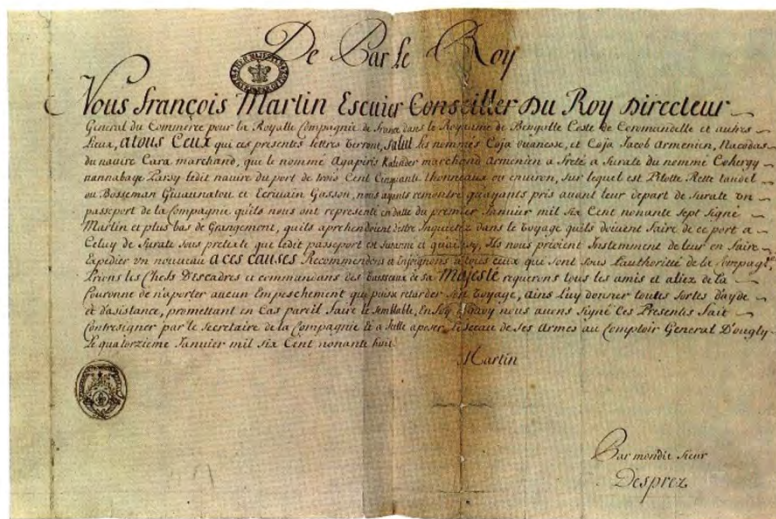 De Par le Roy
Nous françois Martin Escuier Conseiller Du Roy Directeur
General du Commerce pour la Royalle Compagnie de france dans le Royaume de Bengalle Coste de Coromandelle et autres
Lieux, atous Ceux qui ces presentes lettres Verront, salut. les nommés Coja ouanesse, et Coja Jacob Armenien, Nacodas
du navire Cara marchand, que le nommé Agapiris Kalender marchand Armenien a freté a Surate du nommé Cohergy
nannabaye Parsy ledit navire du port de trois Cent Cinquante thonneaux ou environ, Sur lequel est Pilotte Rette tandel
ou Bosseman Givannatou et Ecrivain Gasson, nous ayants remontré quayants pris avant leur depart de Surate Un
passeport de la Compagnie quils nous ont representé en datte du premier Janvier mil Six Cent nonante Sept Signé
Martin et plus bas de Grangemont, quils aprehendoient destre Inquietez dans le Voyage quils doivent faire de ce port a
Celuy de Surate Sous pretexte que ledit passeport est Suranné et quainsy, Ils nous prioient Instemment de leur en faire
Expedier un nouveau a ces causes Recommendons et Enjoignons a tous ceux qui sont sous Lauthorité de la Compagie
Prions les Chefs Descadres et commandans des Vaisseaux de sa Majesté requerons tous les amis et aliez de la
Couronne de n'aporter aucun Empeschement qui puisse retarder Son Voyage, ains Luy donner toutes Sortes d'ayde
et d'asistance, promettant en Cas pareil faire le Semblable, En foy de quoy nous avons Signé Ces Presentes fait
Contresigner par le Secretaire de la Compagnie et a Jcelle aposer le Sceau de Ses Armes au Comptoir General D'ougly
Le quatorzieme Janvier mil six Cent nonante huit
Martin
Par mondit Sieur
Desprez